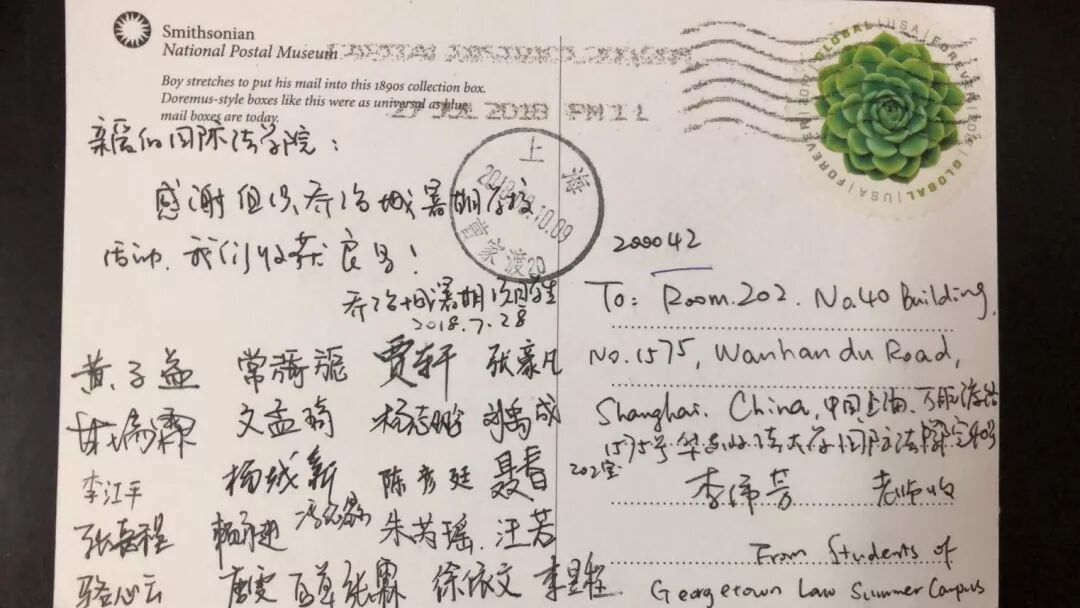 Smithsonian
National Postal Museum
Boy stretches to put his mail into this 1890s collection box.
Doremus-style boxes like this were as universal as blue
mail boxes are today.
2018 PM 11
GLOBAL | USA | FOREVER | 2017
GLOBAL | USA | FOREVER
上海
2018.10.09
曹家渡20
亲爱的国际法学院：
感谢组织乔治城暑期学校
活动，我们收获良多！
乔治城暑期
2018.7.28
黄子益 贾轩 张豪凡
文孟 杨志鹏 刘禹成
李江平 陈彦廷 聂春
朱芮瑶 汪芳
骆心云 张霖 徐依文
200042
To: Room.202. No.40 Building,
No.1575, Wanhan du Road,
Shanghai. China, 中国上海.
1575号华东政法大学国际法学院40号
202室
李 芳 老师收
From Students of
Georgetown Law Summer Campus